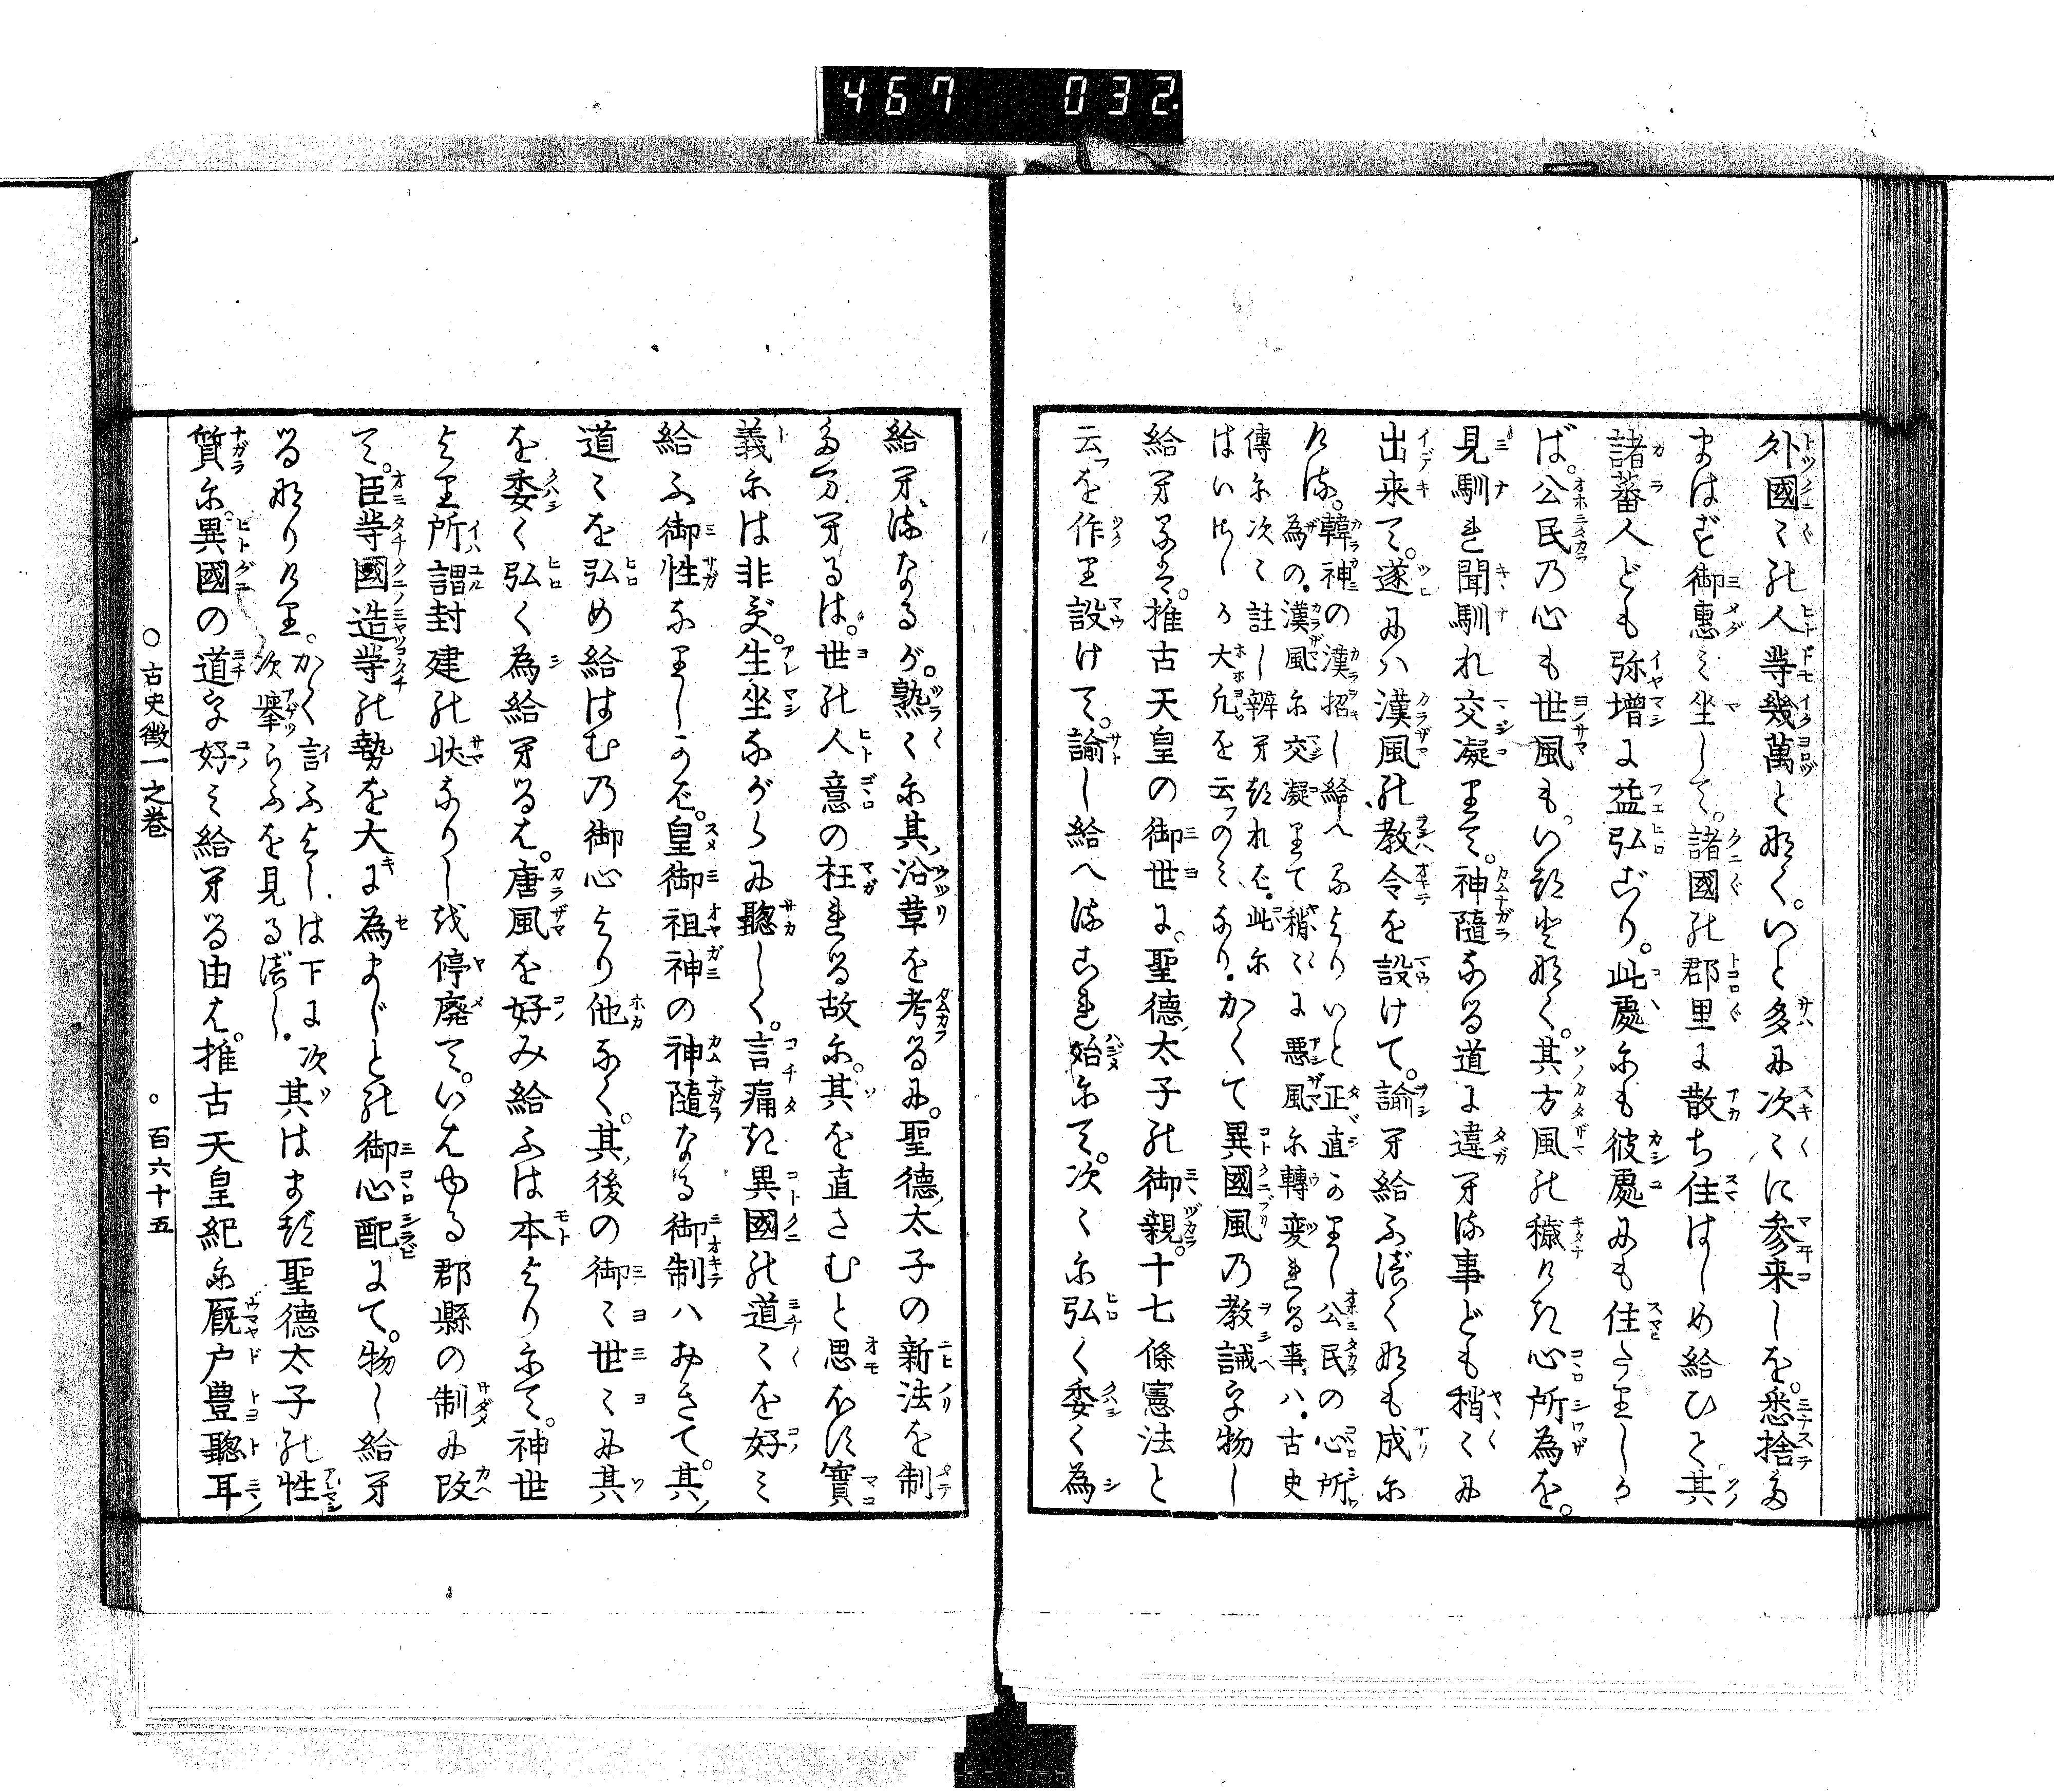 467 032
外國〻の人等幾萬と無く。いと多に次〻に參来しを。悉捨た
まはず御惠み坐して。諸國の郡里に散ち住はしめ給ひて。其
諸蕃人ども弥増に益弘ごり。此處にも彼處にも住りしか
ば。公民乃心も世風も。いつとなく。其方風の穢き心所為を。
見馴れ聞馴れ交凝りて。神隨なる道に違へる事ども稍〻に
出来て。遂には漢風の教令を設けて。諭へ給ふべく無も成に
ける。韓神の漢招し給へるよりいと正直かりし公民の心所
為の。漢風に交凝りて稍〻に惡風に轉変れる事は。古史
傳に次〻註し辨へたれば。此に
はいさゝか大凡を云のみなり。かくて異國風乃教誡字物し
給へるは。推古天皇の御世に。聖德太子の御親。十七條憲法と
云を作り設けて。諭し給へるこれ始にて。次〻に弘く委く為
給へるなるが。熟〻に其沿革を考るに。聖德太子の新法を制
たまへるは。世の人意の枉れる故に。其を直さむと思ほす實
義には非ず。生坐ながらに聰しく。言痛き異國の道〻を好み
給ふ御性なりしかば。皇御祖神の神隨なる御制はおきて。其
道〻を弘め給はむ乃御心より他なく。其後の御〻世〻に其
を委く弘く為給へるは。唐風を好み給ふは本よりにて。神世
より所謂封建の狀なりし我停廢て。いはゆる郡縣の制に改
て。臣等國造等の勢を大に為まじとの御心配にて。物し給へ
るなりけり。かく言ふよしは下に次
次擧らふを見るべし。其はまづ聖德太子の性
質に。異國の道字好み給へる由は。推古天皇紀に厩戸豊聰耳
○古史徴一之巻
○百六十五